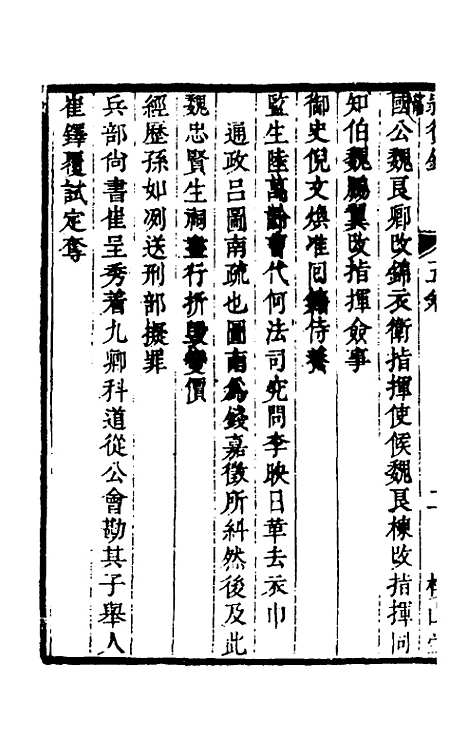 國公魏良卿改錦衣衛指揮使侯魏良棟改指揮同
知伯魏鵬翼改指揮僉事
御史倪文煥准回籍侍養
監生陸萬齡曹代何法司究問李映日革去衣巾
通政呂圖南疏也圖南為錢嘉徵所糾然後及此
魏忠賢生祠盡行折毀變價
經歷孫如冽送刑部擬罪
兵部尚書崔呈秀着九卿科道從公會勘其子舉人
崔鐸覆試定奪